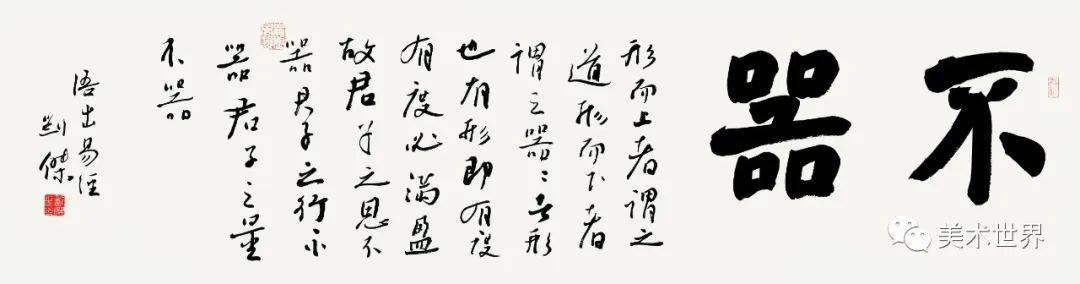 不器
形而上者謂之
道形而下者
謂之器〻者形
也有形即有度
有度必滿盈
故君子之思不
器君子之行不
器君子之量
不器
語出易經
劉傑
美术世界